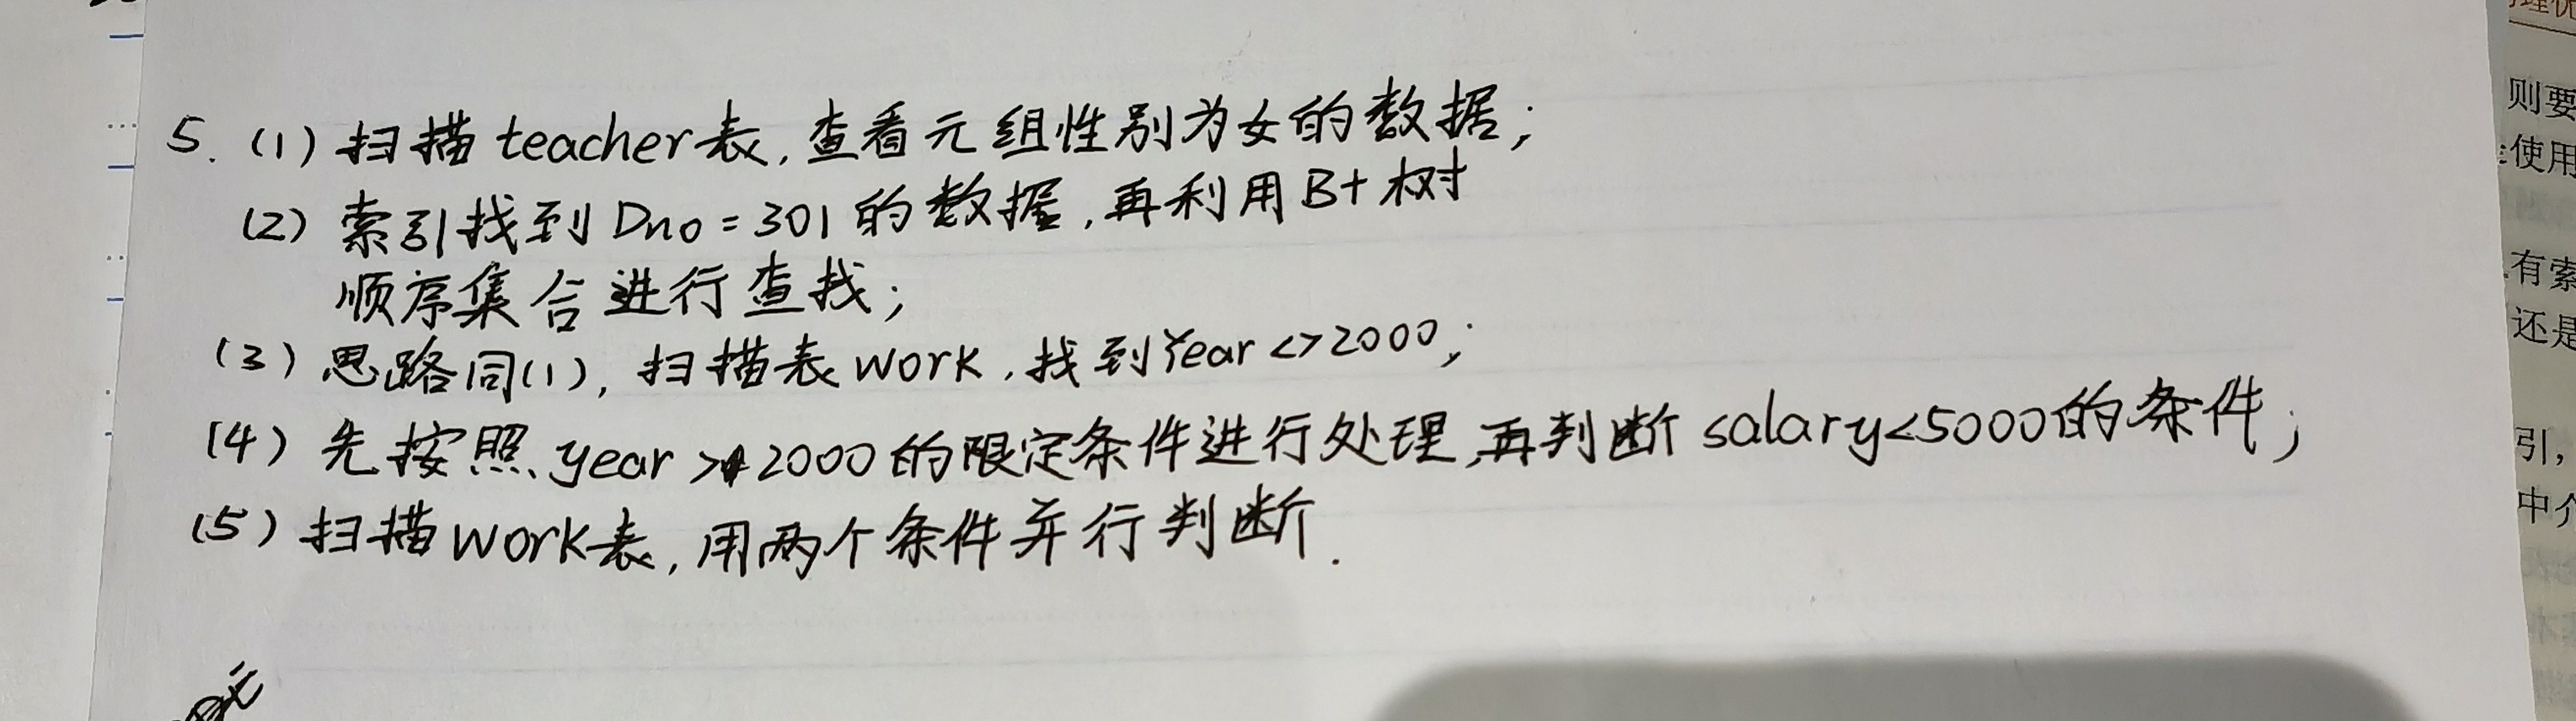 5. (1) 扫描 teacher表, 查看元组性别为女的数据;
(2) 索引找到 Dno = 301 的数据, 再利用 B+ 树
顺序集合进行查找;
(3) 思路同(1), 扫描表 work, 找到 Year <> 2000;
(4) 先按照 year > 2000 的限定条件进行处理, 再判断 salary<5000的条件;
(5) 扫描 work表, 用两个条件并行判断.
则要
使用
有索
还是
引,
中介